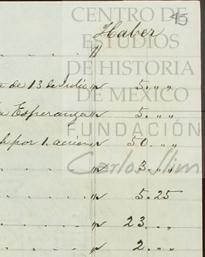 45
Haber
de 13 de Julio 5 „ „
Esperanza 5 „ „
por 1. accion 50 „ „
3 „ „
5.25
23 „ „
2 „ „
CENTRO DE
ESTUDIOS
DE HISTORIA
DE MÉXICO
FUNDACIÓN
Carlos Slim